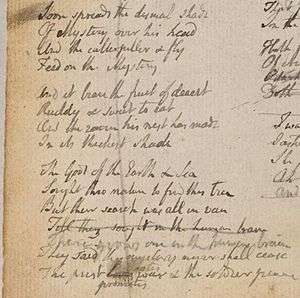 Soon spreads the dismal shade
Of Mystery over his head
And the catterpiller & fly
Feed on the Mystery
And it bears the fruit of deceit
Ruddy & sweet to eat
And the raven his nest has made
In its thickest shade
The Gods of the Earth & Sea
Sought thro nature to find this tree
But their search was all in vain
Till they sought in the human brain
There grows one in the human brain
They said this mystery never shall cease
The priest war & the soldier peace
promotes
In the
Both